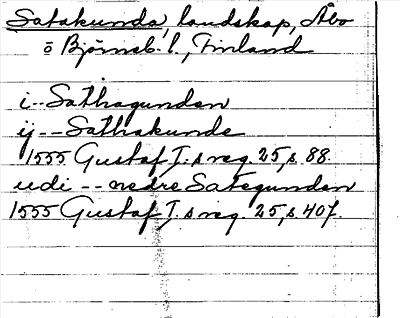 Satakunda, landskap, Åbo
o Björneb. l., Finland
i -- Sathagundan
ij -- Sathakunde
1555 Gustaf I.s reg. 25, s. 88.
udi -- nedre Sategundan
1555 Gustaf I.s reg. 25, s. 407.